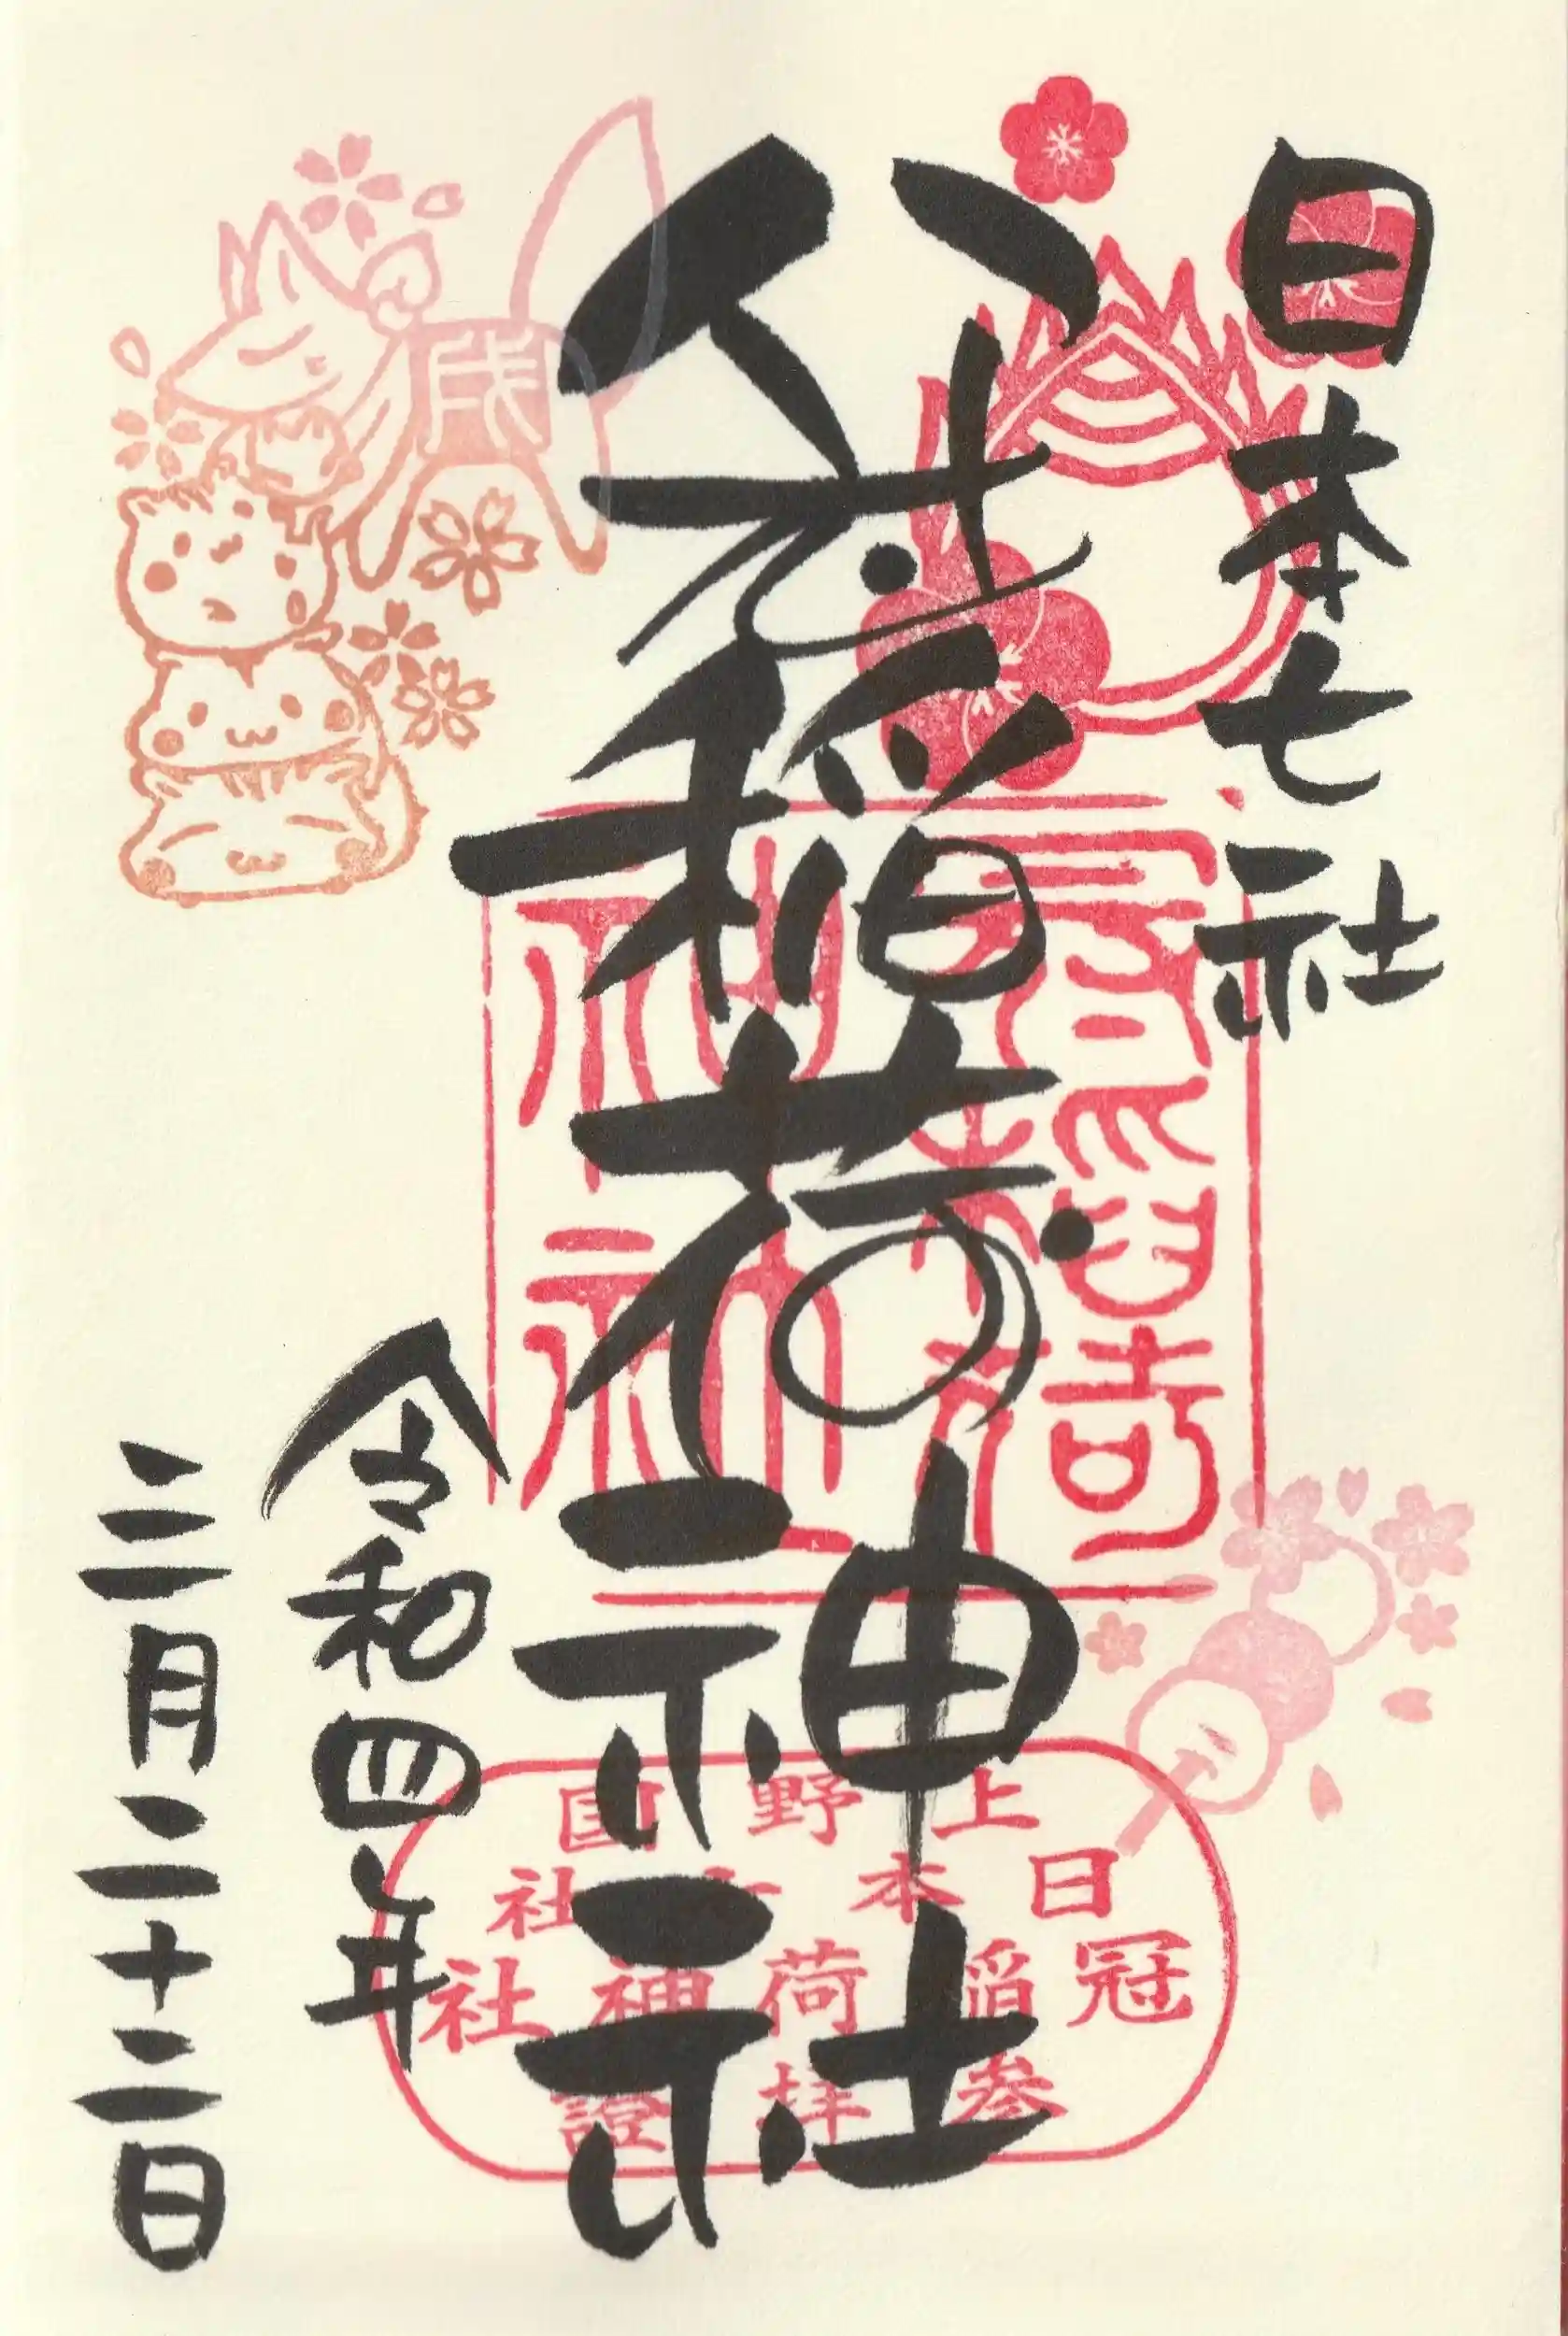 日本七社
冠稲荷神社
令和四年
三月二十二日
上野国
日本七社
冠稲荷神社
参拝證